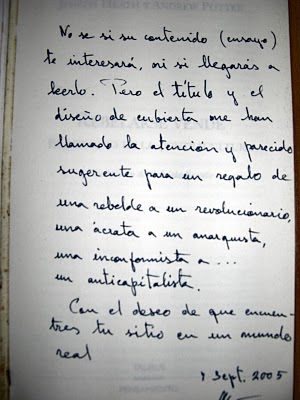 JOSEPH HEATH Y ANDREW POTTER
No se si su contenido (ensayo)
te interesará, ni si llegarás a
leerlo. Pero el título y el
diseño de cubierta me han
llamado la atención y parecido
sugerente para un regalo de
una rebelde a un revolucionario,
una ácrata a un anarquista,
una inconformista a ...
un anticapitalista.
Con el deseo de que encuen-
tres tu sitio en un mundo
real
1 Sept. 2005
TAURUS
PENSAMIENTO